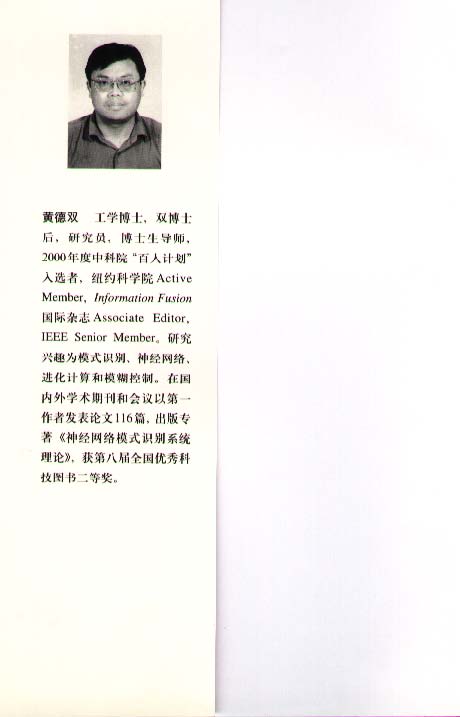 黄德双 工学博士，双博士
后，研究员，博士生导师，
2000年度中科院“百人计划”
入选者，纽约科学院 Active
Member, Information Fusion
国际杂志 Associate Editor,
IEEE Senior Member。研究
兴趣为模式识别、神经网络、
进化计算和模糊控制。在国
内外学术期刊和会议以第一
作者发表论文116篇，出版专
著《神经网络模式识别系统
理论》，获第八届全国优秀科
技图书二等奖。